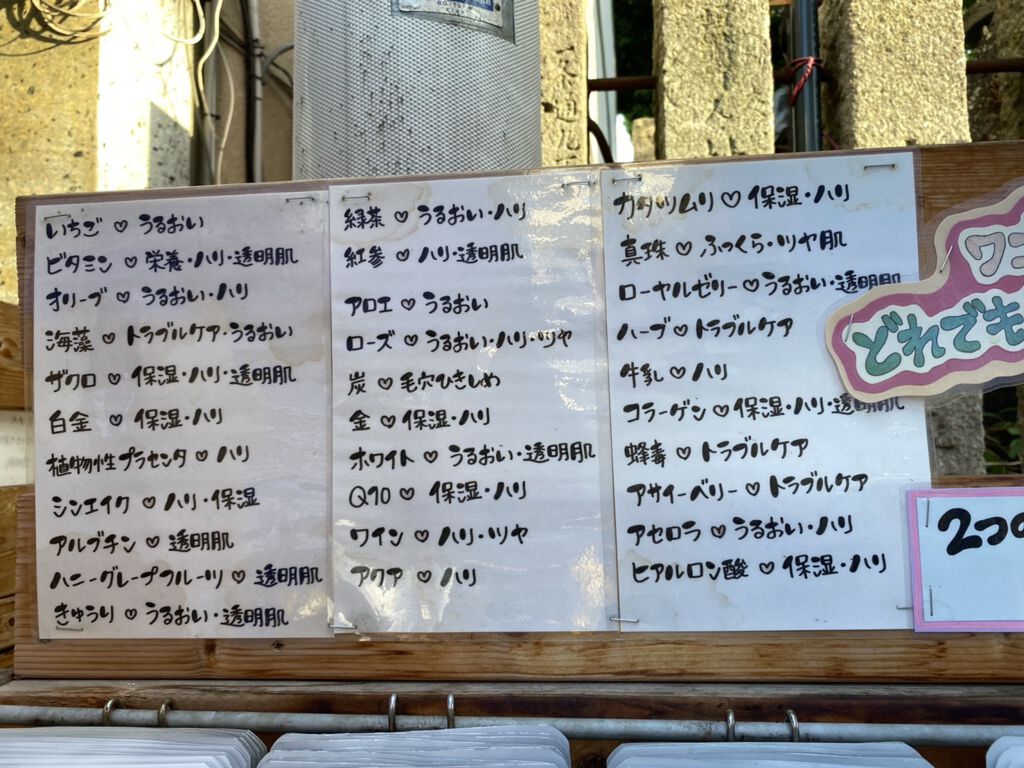 いちご ♡ うるおい
ビタミン ♡ 栄養・ハリ・透明肌
オリーブ ♡ うるおい・ハリ
海藻 ♡ トラブルケア・うるおい
ザクロ ♡ 保湿・ハリ・透明肌
白金 ♡ 保湿・ハリ
植物性プラセンタ ♡ ハリ
シンエイク ♡ ハリ・保湿
アルブチン ♡ 透明肌
ハニーグレープフルーツ ♡ 透明肌
きゅうり ♡ うるおい・透明肌
緑茶 ♡ うるおい・ハリ
紅参 ♡ ハリ・透明肌
アロエ ♡ うるおい
ローズ ♡ うるおい・ハリ・ツヤ
炭 ♡ 毛穴ひきしめ
金 ♡ 保湿・ハリ
ホワイト ♡ うるおい・透明肌
Q10 ♡ 保湿・ハリ
ワイン ♡ ハリ・ツヤ
アクア ♡ ハリ
カタツムリ ♡ 保湿・ハリ
真珠 ♡ ふっくら・ツヤ肌
ローヤルゼリー ♡ うるおい・透明肌
ハーブ ♡ トラブルケア
牛乳 ♡ ハリ
コラーゲン ♡ 保湿・ハリ・透明肌
蜂毒 ♡ トラブルケア
アサイーベリー ♡ トラブルケア
アセロラ ♡ うるおい・ハリ
ヒアルロン酸 ♡ 保湿・ハリ
ワコ
どれでも
2つの